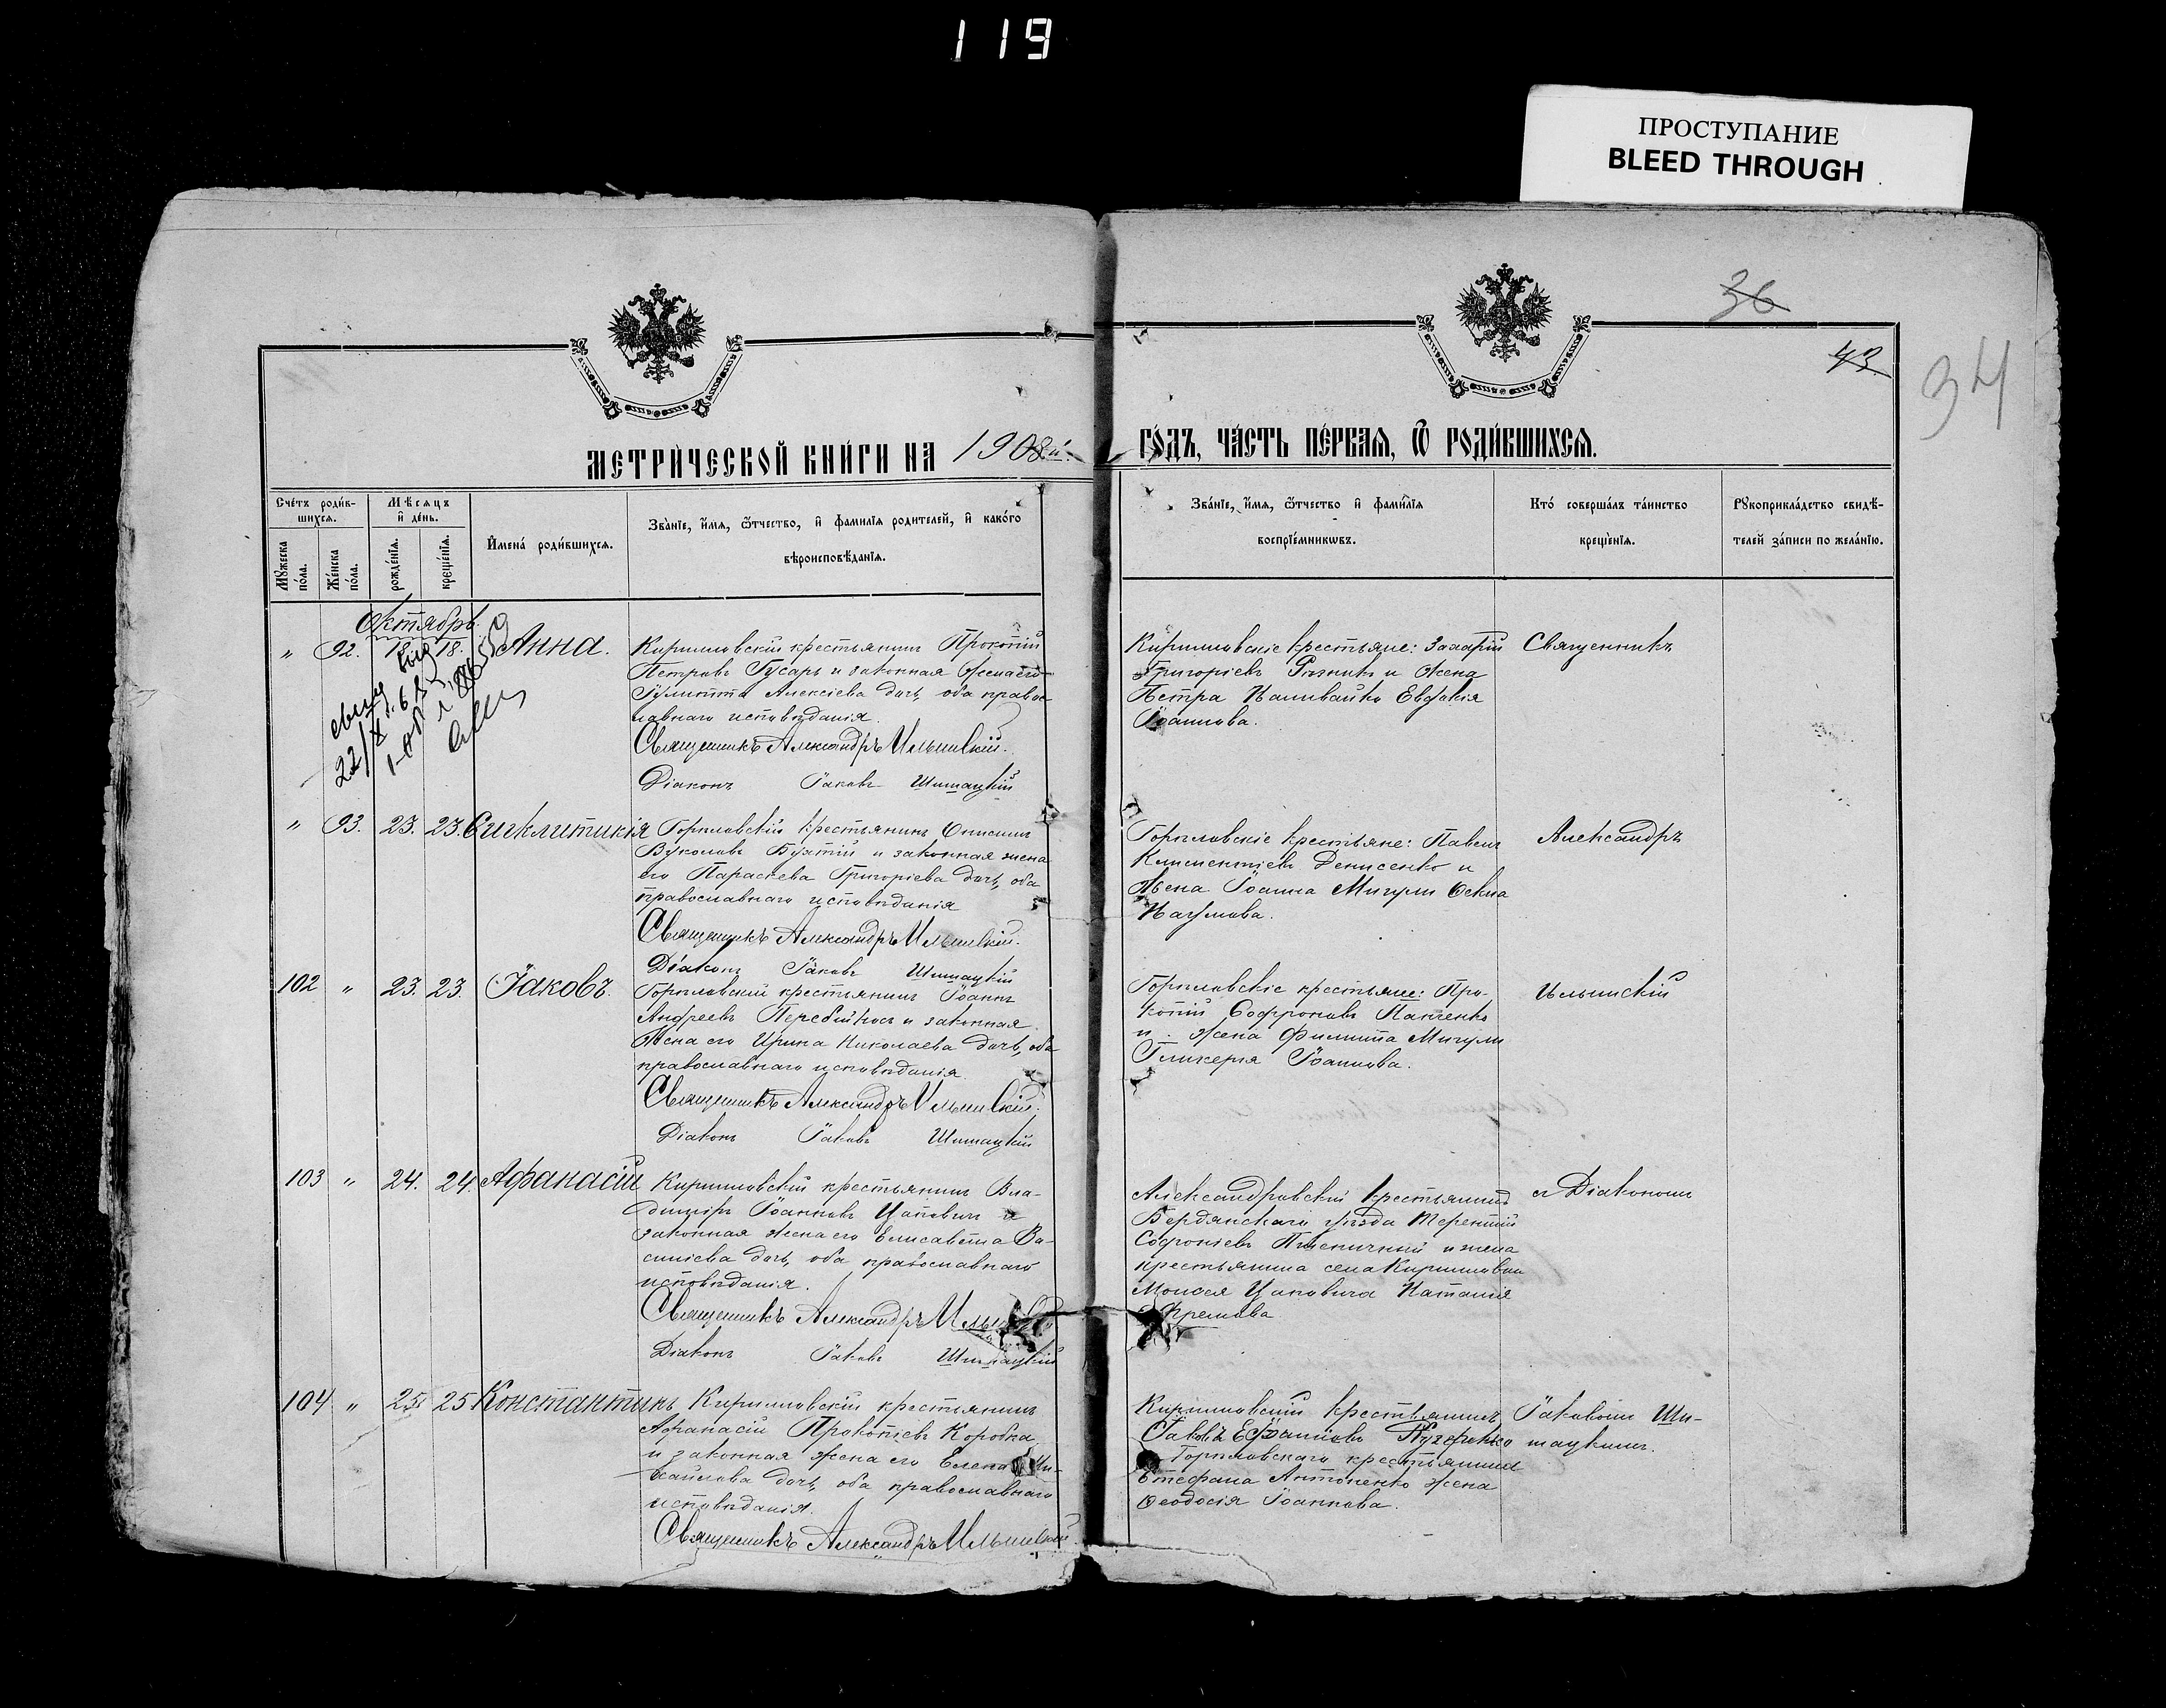 119
ПРОСТУПАНИЕ
BLEED THROUGH
36
43
34
МЕТРИЧЕСКОЙ КНИГИ НА 1908й.
ГОДЪ, ЧАСТЬ ПЕРВАЯ, Ѿ РОДИВШИХСЯ.
Счетъ родив-
шихся.
Мꙋжеска пола.
Женска пола.
Мѣсяцъ и день.
рожденїя.
крещенїя.
Имена родившихся.
Званїе, имя, ѿтчество, и фамилїя родителей, и какого
вѣроисповѣданїя.
Званїе, имя, ѿтчество и фамилїя
воспрїемникѡвъ.
Кто совершалъ таинство
крещенїя.
Рꙋкоприкладство свидѣ-
телей записи по желанїю.
Октябрь.
" 92. 18. 18. Анна.
Кирилловскій крестьянинъ Прокопій
Петровъ Гусарь и законная жена его
Іулитта Алексіева дочь, оба правос-
лавнаго исповѣданія.
Священникъ Александръ Ильинскій.
Діаконъ Іаковъ Шишацкій
Кирилловскіе крестьяне: Захарій
Григоріевъ Рѣзникъ и жена
Петра Наливайко Евдокія
Іоаннова.
Священникъ
" 93. 23. 23. Сигклитикія
Горѣловскій крестьянинъ Онисимъ
Вуколовъ и законная жена
его Параскева Григоріева дочь, оба
православнаго исповѣданія
Священникъ Александръ Ильинскій.
Діаконъ Іаковъ Шишацкій
Горѣловскіе крестьяне: Павелъ
Климентіевъ Денисенко и
жена Іоанна Мигули Ѳекла
Наумова.
Александръ
102 " 23. 23. Іаковъ.
Горѣловскій крестьянинъ Іоаннъ
Андреевъ Перебийносъ и законная
жена его Ирина Николаева дочь, оба
православнаго исповѣданія
Священникъ Александръ Ильинскій.
Діаконъ Іаковъ Шишацкій
Горѣловскіе крестьяне: Про-
копій Софроновъ Панченко
и жена Филиппа Мигули
Гликерія Іоаннова.
Ильинскій
103 " 24. 24. Афанасій
Кирилловскій крестьянинъ Вла-
диміръ Іоанновъ Цаповичъ и
законная жена его Елисавета Ва-
силіева дочь, оба православнаго
исповѣданія.
Священникъ Александръ
Діаконъ Іаковъ Шишацкій
Александровскій крестьянинъ
Бердянскаго уѣзда Терентій
Софроніевъ Пшеничный и жена
крестьянина села Кирилловки
Моисея Цаповича Наталія
съ Діакономъ
104 " 25. 25 Константинъ
Кирилловскій крестьянинъ
Афанасій Прокопіевъ Коробка
и законная жена его Елена Ми-
хайлова дочь, оба православнаго
исповѣданія.
Священникъ Александръ Ильинскій.
Кирилловскій крестьянинъ
Іаковъ
Горѣловскаго крестьянина
Стефана Антоненко жена
Ѳеодосія Іоаннова.
Іаковомъ Ши-
шацкимъ.